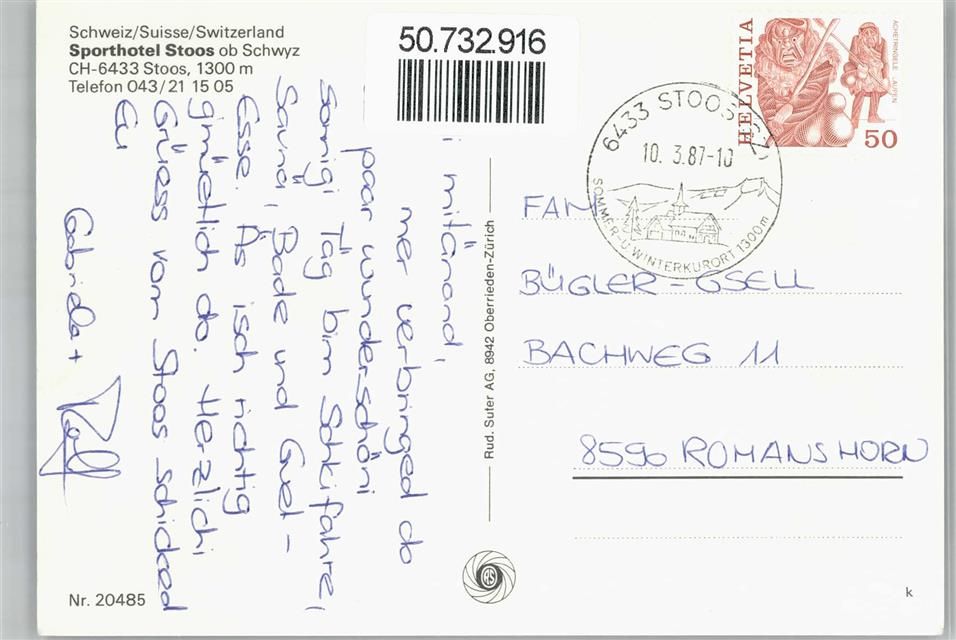 Schweiz/Suisse/Switzerland
Sporthotel Stoos ob Schwyz
CH-6433 Stoos, 1300 m
Telefon 043/21 15 05
50.732.916
HELVETIA
ACHETRINGELE LAUPEN
50
6433 STOOS (SZ)
10.3.87-10
SOMMER-U. WINTERKURORT 1300m
i mitänand,
mer verbringed do
paar wunderschöni
sonnigi Täg bim Schkifahre,
Sauna, Bade und Guet-
Esse. Äs isch richtig
gmüetlich do. Herzlichi
Grüess vom Stoos schicked
Eu
Gabriela + Ralf
Rud. Suter AG, 8942 Oberrieden-Zürich
FAM
BÜGLER-GSELL
BACHWEG 11
8590 ROMANSHORN
Nr. 20485
RS
k